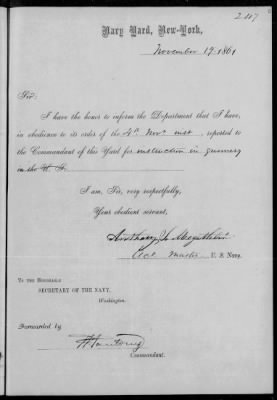 Navy Yard, New-York,
November 19. 1861
Sir:
I have the honor to inform the Department that I have,
in obedience to its order of the 4th Novr inst, reported to
the Commandant of this Yard for instruction in gunnery
in the
I am, Sir, very respectfully,
Your obedient servant,
Anthony
Actg Master U. S. Navy.
To the Honorable
SECRETARY OF THE NAVY,
Washington.
Forwarded by
Commandant.